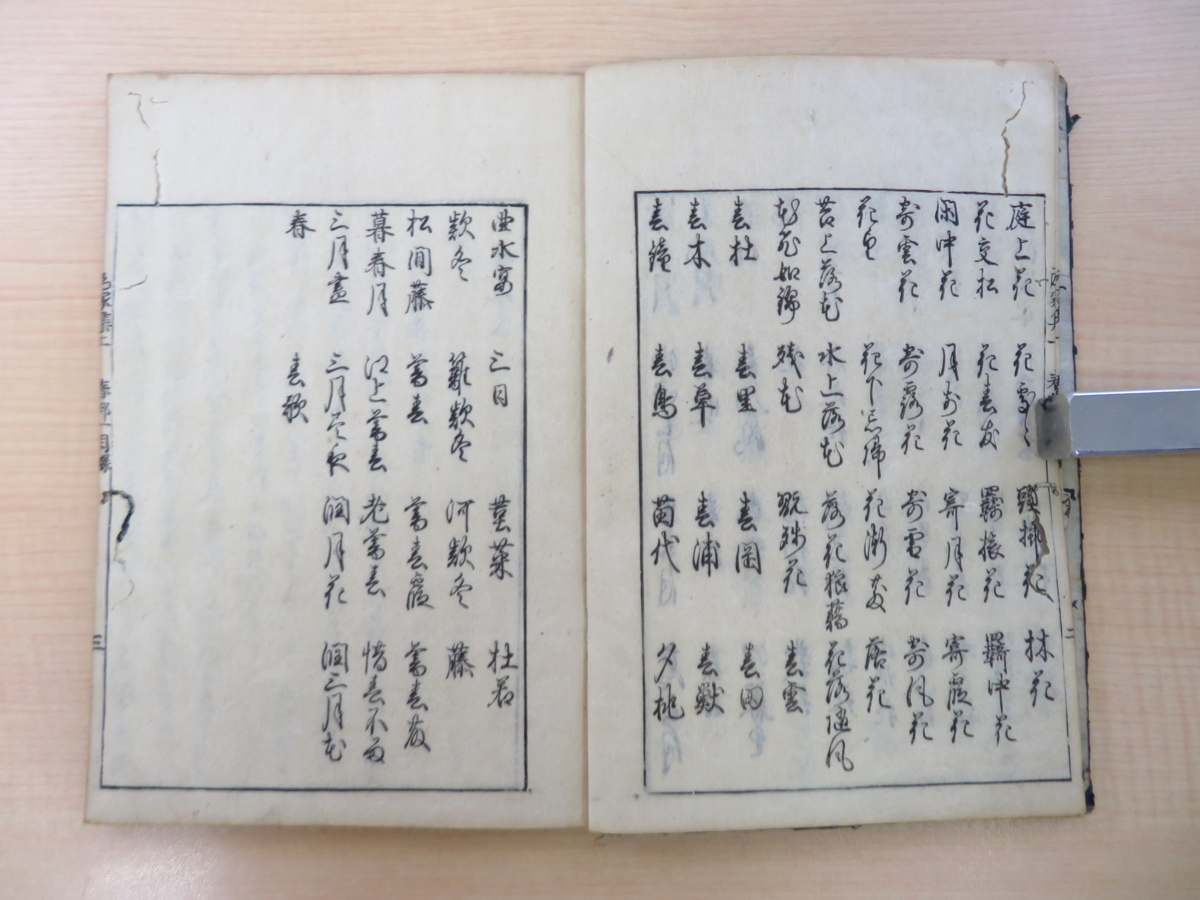 庭上花 花雪 頭挿花 林花
花交松 花春友 羇旅花 羇中花
閑中花 月前花 寄月花 寄霞花
寄雲花 寄露花 寄雪花 寄風花
花色 花下忘帰 花漸散 落花
苔上落花 水上落花 落花狼藉 花落随風
落花如錦 残花 翫残花 春雲
春杜 春里 春岡 春田
春木 春草 春浦 春獣
春鐘 春鳥 苗代 夕桃
曲水宴 三日 菫菜 杜若
欵冬 籬欵冬 河欵冬 藤
松間藤 暮春 暮春霞 暮春
暮春月 江上暮春 老暮春 惜春不留
三月盡 三月尽夜 潤月花 潤三月花
春 春歌
春部 目録
三